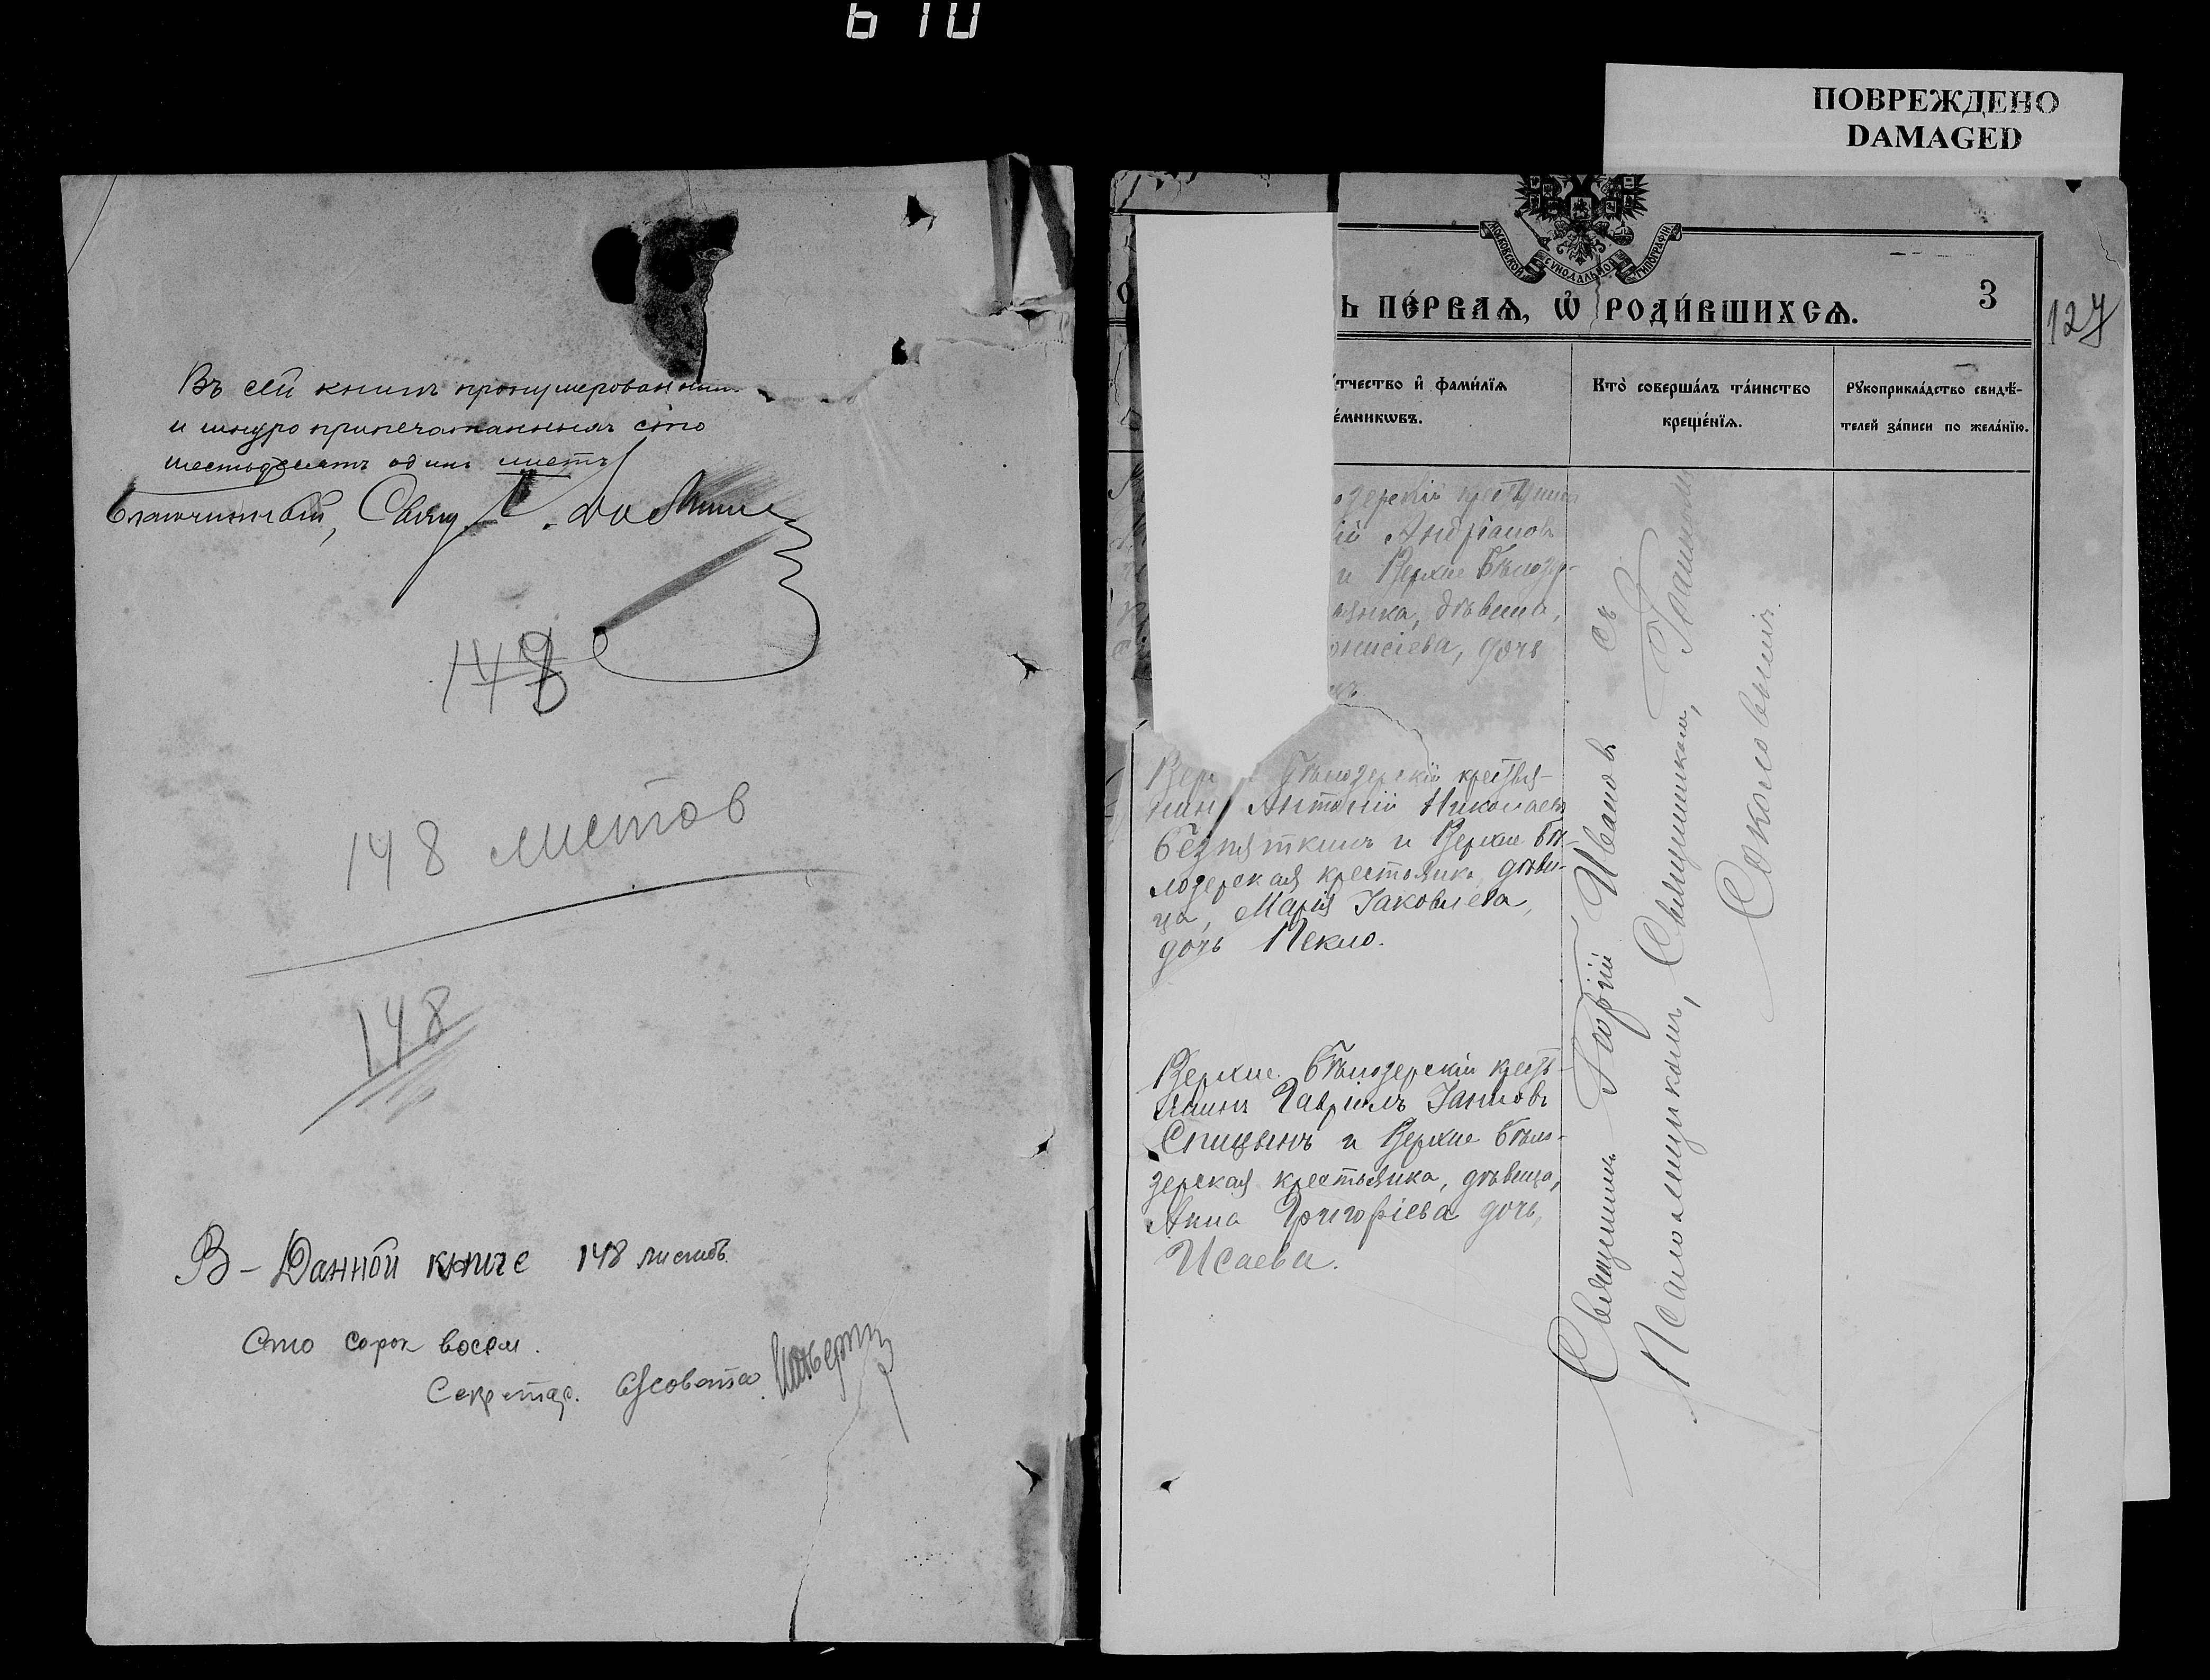 610
ПОВРЕЖДЕНО
DAMAGED
Въ сей книгѣ пронумерованныхъ
и шнуро припечатанныхъ сто
шестьдесятъ одинъ листъ
Благочинный, Свящ.
148
148 листов
148
В - Данной книге 148 листов.
Сто сорок восем.
Секретар. с/совета
МОСКОВСКОЙ СѴНОДАЛЬНОЙ ТИПОГРАФІИ
Ь ПЕ́РВАѦ, Ѡ҆ РОДИ́ВШИХСѦ.
3
127
тчество и҆ фами́лїѧ
е́мникѡвъ.
Кто̀ соверша́лъ та́инство
креще́нїѧ.
Рꙋкоприкла́дство свидѣ́-
телей за́писи по жела́нїю.
зерскій крестьянин
ій Андріанов
и Верхне Бѣлозер-
янка, дѣвица,
онисіева, дочь
Верхне Бѣлозерскій крестья-
нин Антоній Николаев
Безпяткинъ и Верхне Бѣ-
лозерская крестьянка дѣви-
ца, Марія Іаковлева,
дочь Пекло.
Верхне Бѣлозерскій кресть-
янинъ Гавріилъ Іаковъ
Спицынъ и Верхне Бѣло-
зерская крестьянка, дѣвица,
Анна Григоріева дочь,
Исаева.
Священникъ Гурій Иванов съ
Псаломщикомъ, Священникомъ, Іоанномъ
Соколовымъ.